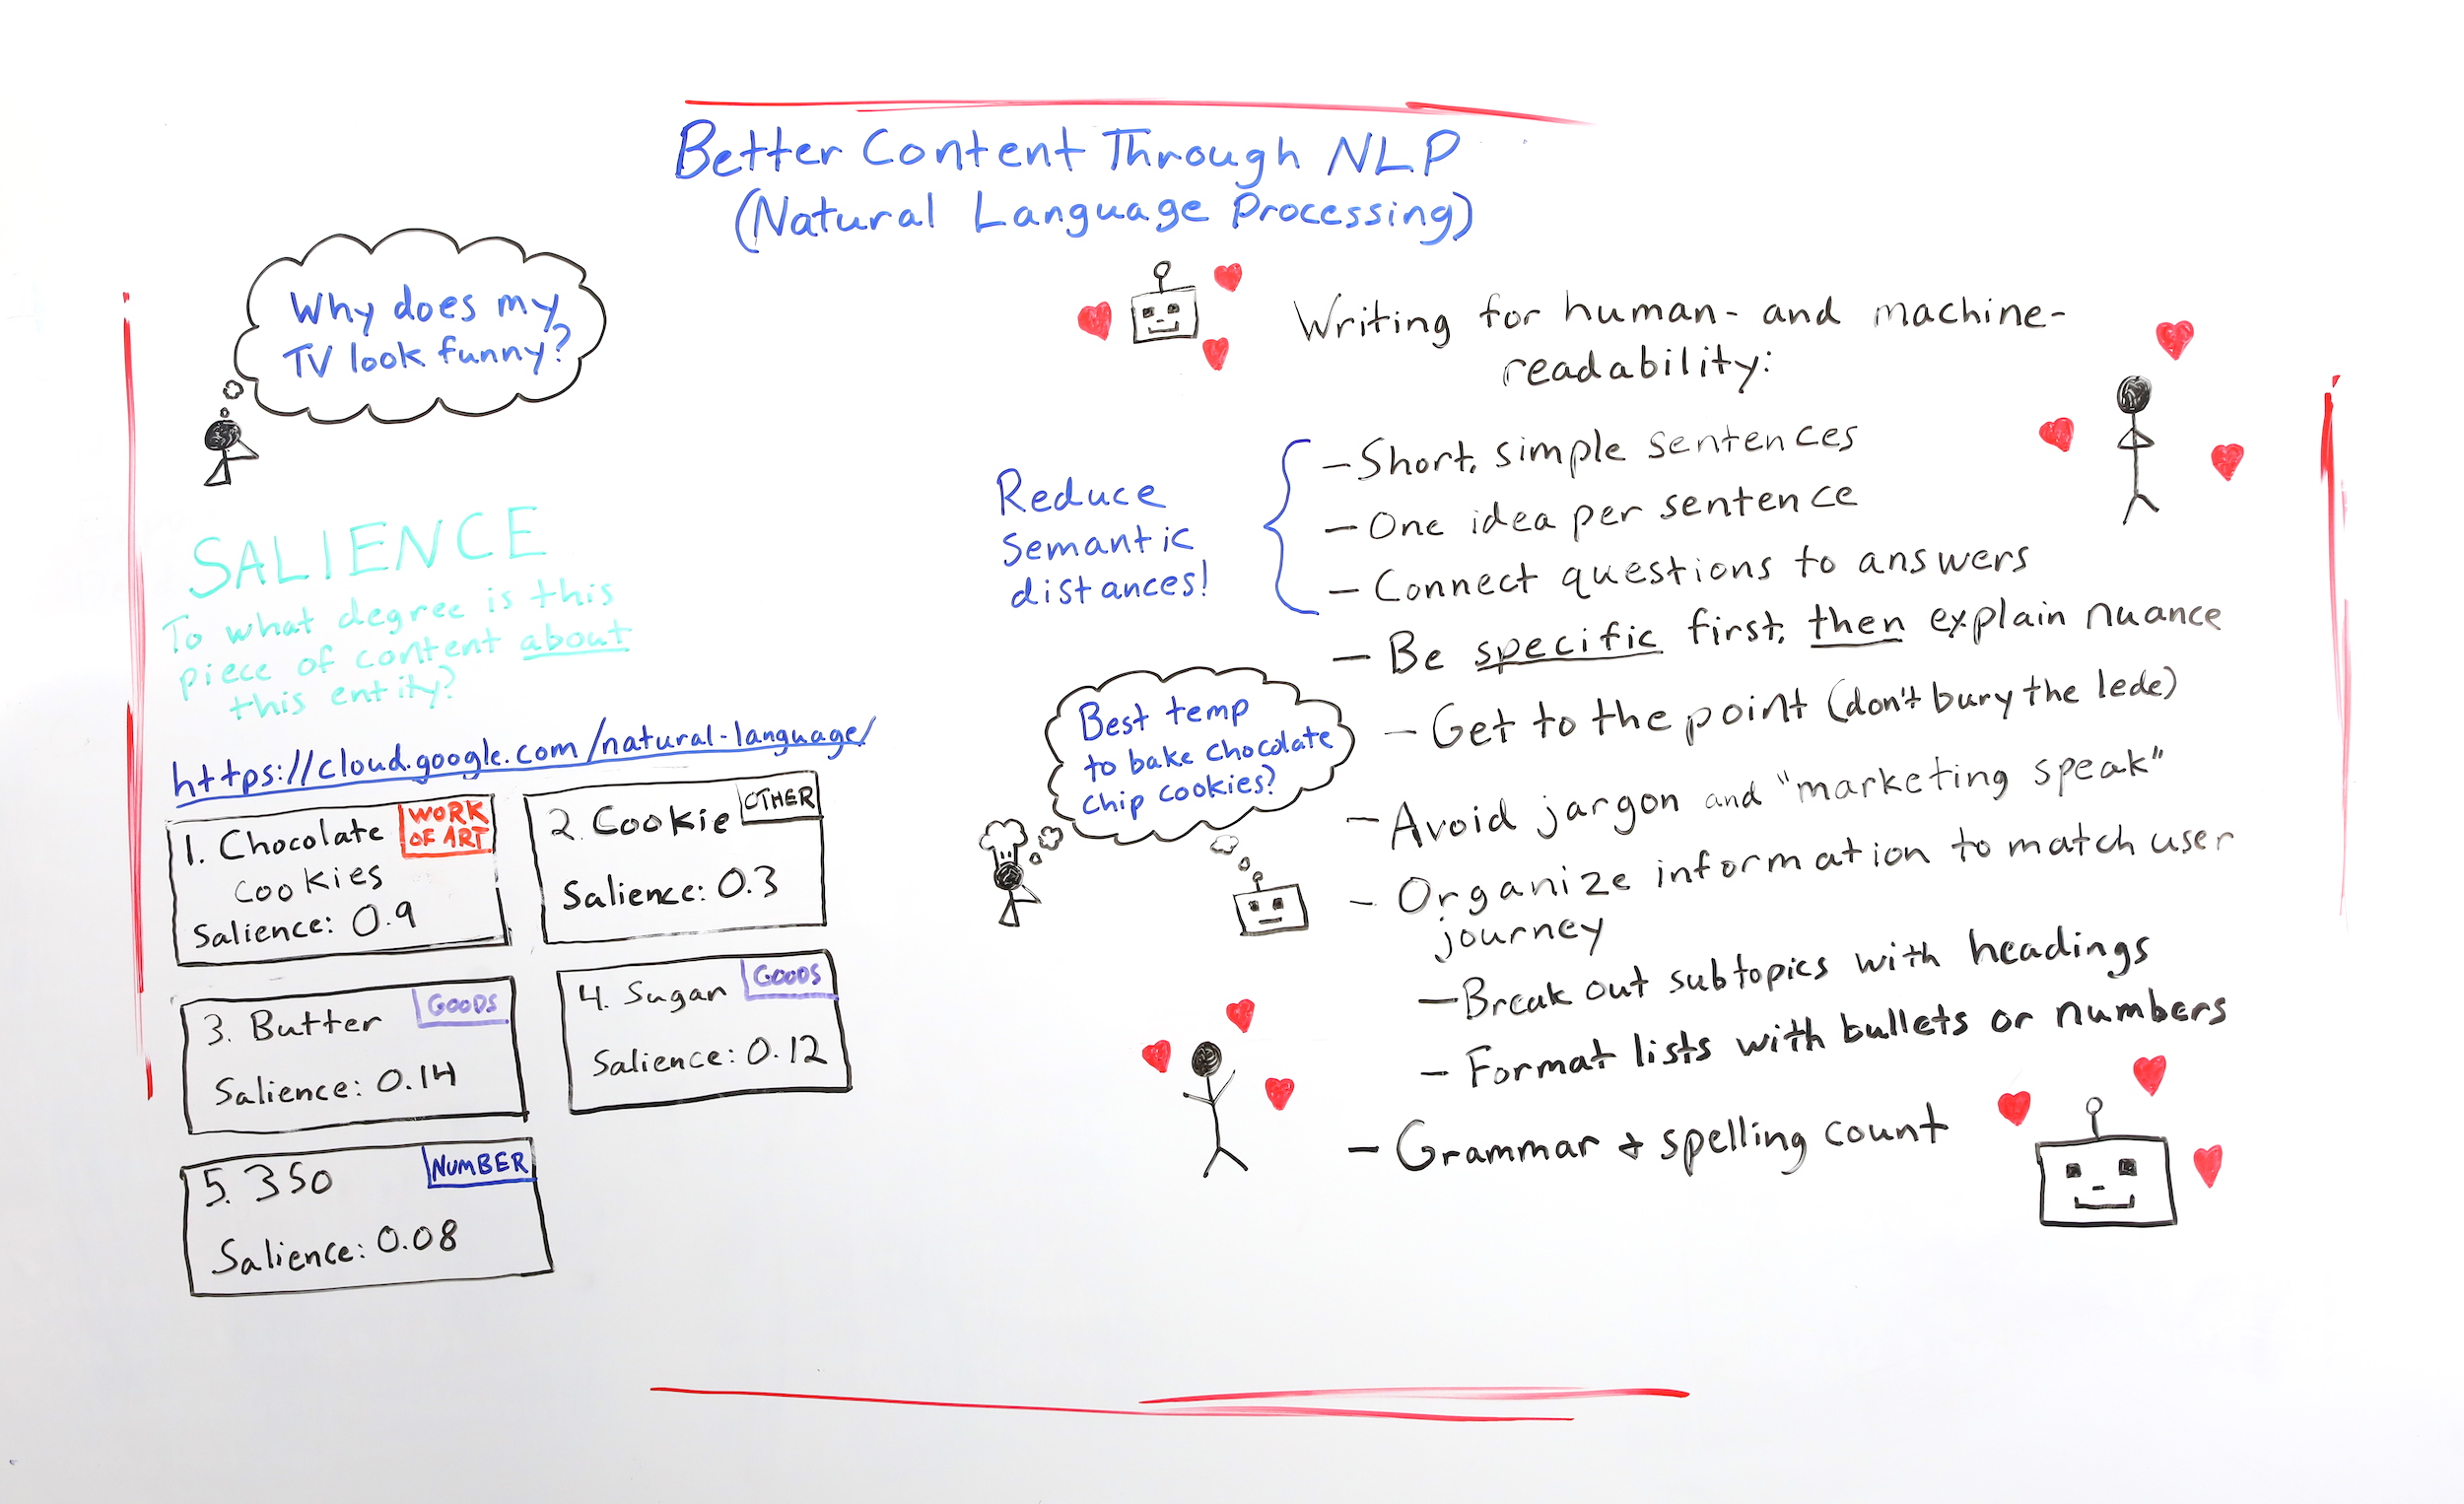 Better Content Through NLP
(Natural Language Processing)
Why does my
TV look funny?
SALIENCE
To what degree is this
piece of content about
this entity?
https://cloud.google.com/natural-language/
1. Chocolate
Cookies
WORK
OF ART
Salience: 0.9
2. Cookie
OTHER
Salience: 0.3
3. Butter
GOODS
Salience: 0.14
4. Sugar
GOODS
Salience: 0.12
5. 350
NUMBER
Salience: 0.08
Writing for human- and machine-
readability:
Reduce
semantic
distances!
- Short, simple sentences
- One idea per sentence
- Connect questions to answers
- Be specific first, then explain nuance
- Get to the point (don't bury the lede)
Best temp
to bake chocolate
chip cookies?
- Avoid jargon and "marketing speak"
- Organize information to match user
journey
- Break out subtopics with headings
- Format lists with bullets or numbers
- Grammar + spelling count